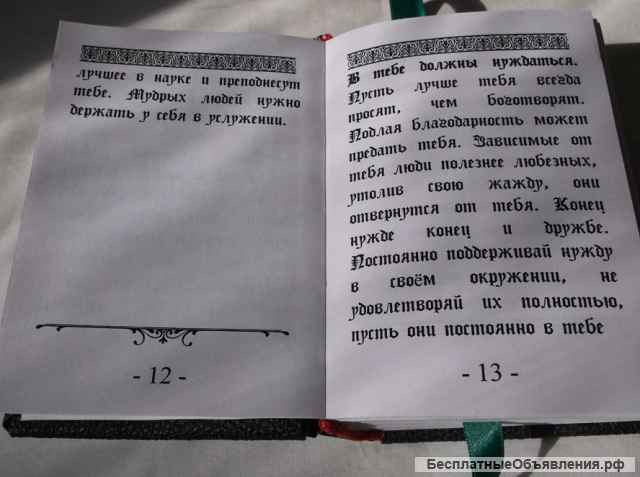 лучшее в науке и преподнесут
тебе. Мудрых людей нужно
держать у себя в услужении.
- 12 -
В тебе должны нуждаться.
Пусть лучше тебя всегда
просят, чем боготворят.
Подлая благодарность может
предать тебя. Зависимые от
тебя люди полезнее любезных,
утолив свою жажду, они
отвернутся от тебя. Конец
нужде конец и дружбе.
Постоянно поддерживай нужду
в своём окружении, не
удовлетворяй их полностью,
пусть они постоянно в тебе
- 13 -
БесплатныеОбъявления.рф